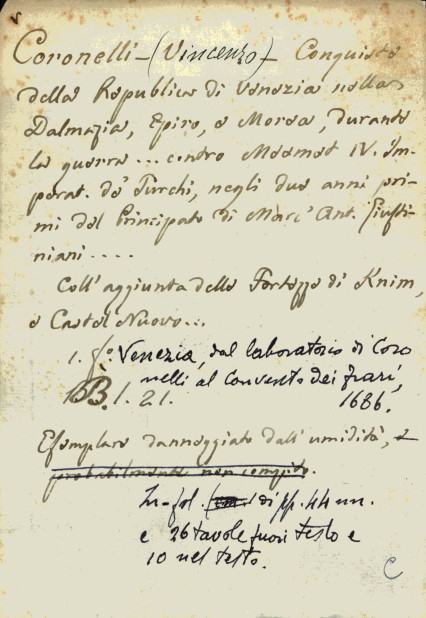 Coronelli - (Vincenzo) - Conquiste
della Republica di Venezia nella
Dalmazia, Epiro, e Morea, durante
la guerra ... contro Meemet IV. Im-
perat. de' Turchi, negli due anni pri-
mi del Principato di Marc' Ant. Giusti-
niani ....
Coll' aggiunta delle Fortezze di Knim,
e Castel Nuovo ...
1. f.º Venezia, dal laboratorio di Coro
nelli al Convento dei frari,
1686.
B. 1. 21.
Esemplare danneggiato dall' umidità, e
probabilmente non compito.
In-fol. di pp. 44 nn.
e 26 tavole fuori testo e
10 nel testo.
C